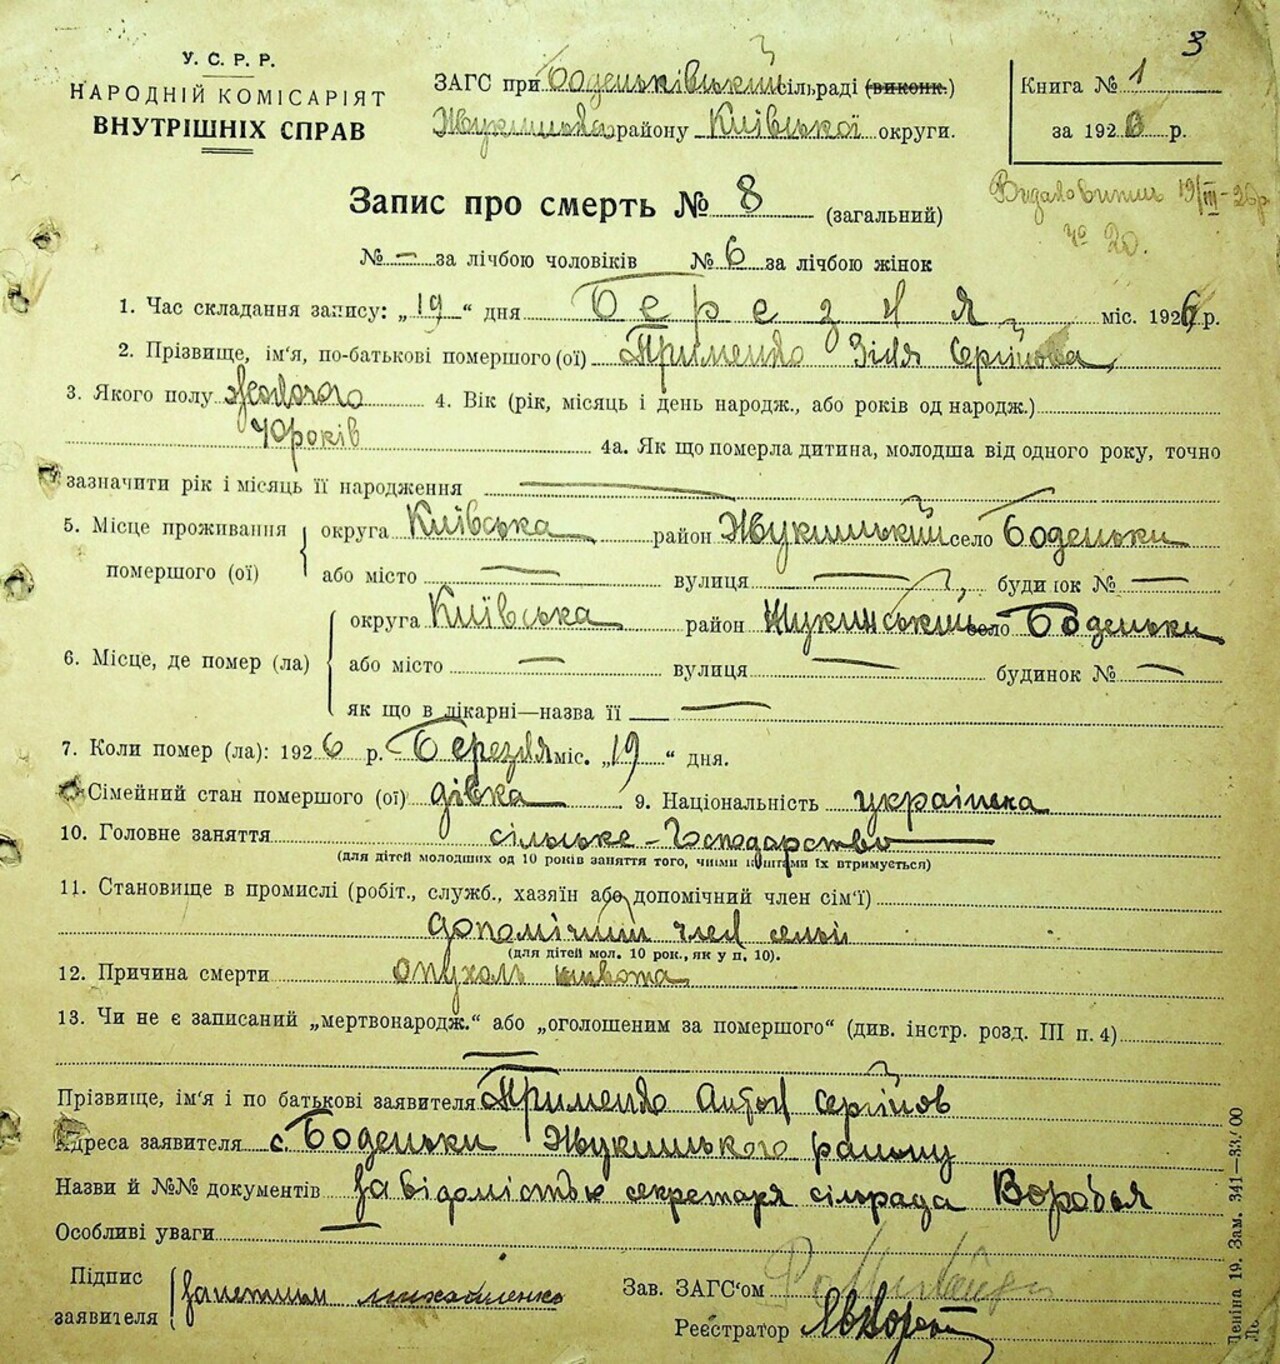 3
У. С. Р. Р.
НАРОДНІЙ КОМІСАРІЯТ
ВНУТРІШНІХ СПРАВ
ЗАГС при Боденьківський сільраді (виконк.)
району Київської округи.
Книга № 1
за 1926 р.
19/III-26р
№ 20.
Запис про смерть № 8 (загальний)
№ — за лічбою чоловіків № 6 за лічбою жінок
1. Час складання запису: „19“ дня Березня міс. 1926 р.
2. Прізвище, ім'я, по-батькові помершого (ої) Применко Зіня Сергійова
3. Якого полу жіночого 4. Вік (рік, місяць і день народж., або років од народж.)
40 років 4а. Як що померла дитина, молодша від одного року, точно
зазначити рік і місяць її народження —
5. Місце проживання помершого (ої) округа Київська район Жукинський село Боденьки
або місто — вулиця — будинок № —
6. Місце, де помер (ла) округа Київська район Жукинський село Боденьки
або місто — вулиця — будинок № —
як що в лікарні—назва її —
7. Коли помер (ла): 1926 р. Березня міс. „19“ дня.
Сімейний стан помершого (ої) дівка 9. Національність українка
10. Головне заняття сільське-Господарство
(для дітей молодших од 10 років заняття того, чиїми коштами їх втримується)
11. Становище в промислі (робіт., служб., хазяїн або допомічний член сім'ї)
допомічний член семьи
(для дітей мол. 10 рок., як у п. 10).
12. Причина смерти опухаль живота
13. Чи не є записаний „мертвонародж.“ або „оголошеним за помершого“ (див. інстр. розд. III п. 4)
—
Прізвище, ім'я і по батькові заявителя Применко Антон Сергійов
Адреса заявителя с. Боденьки Жукинського району
Назви й №№ документів За відомістью секретаря сільрада Воробья
Особливі уваги —
Підпис заявителя
Зав. ЗАГС'ом
Реєстратор
Леніна 19. Зам. 341—33/00